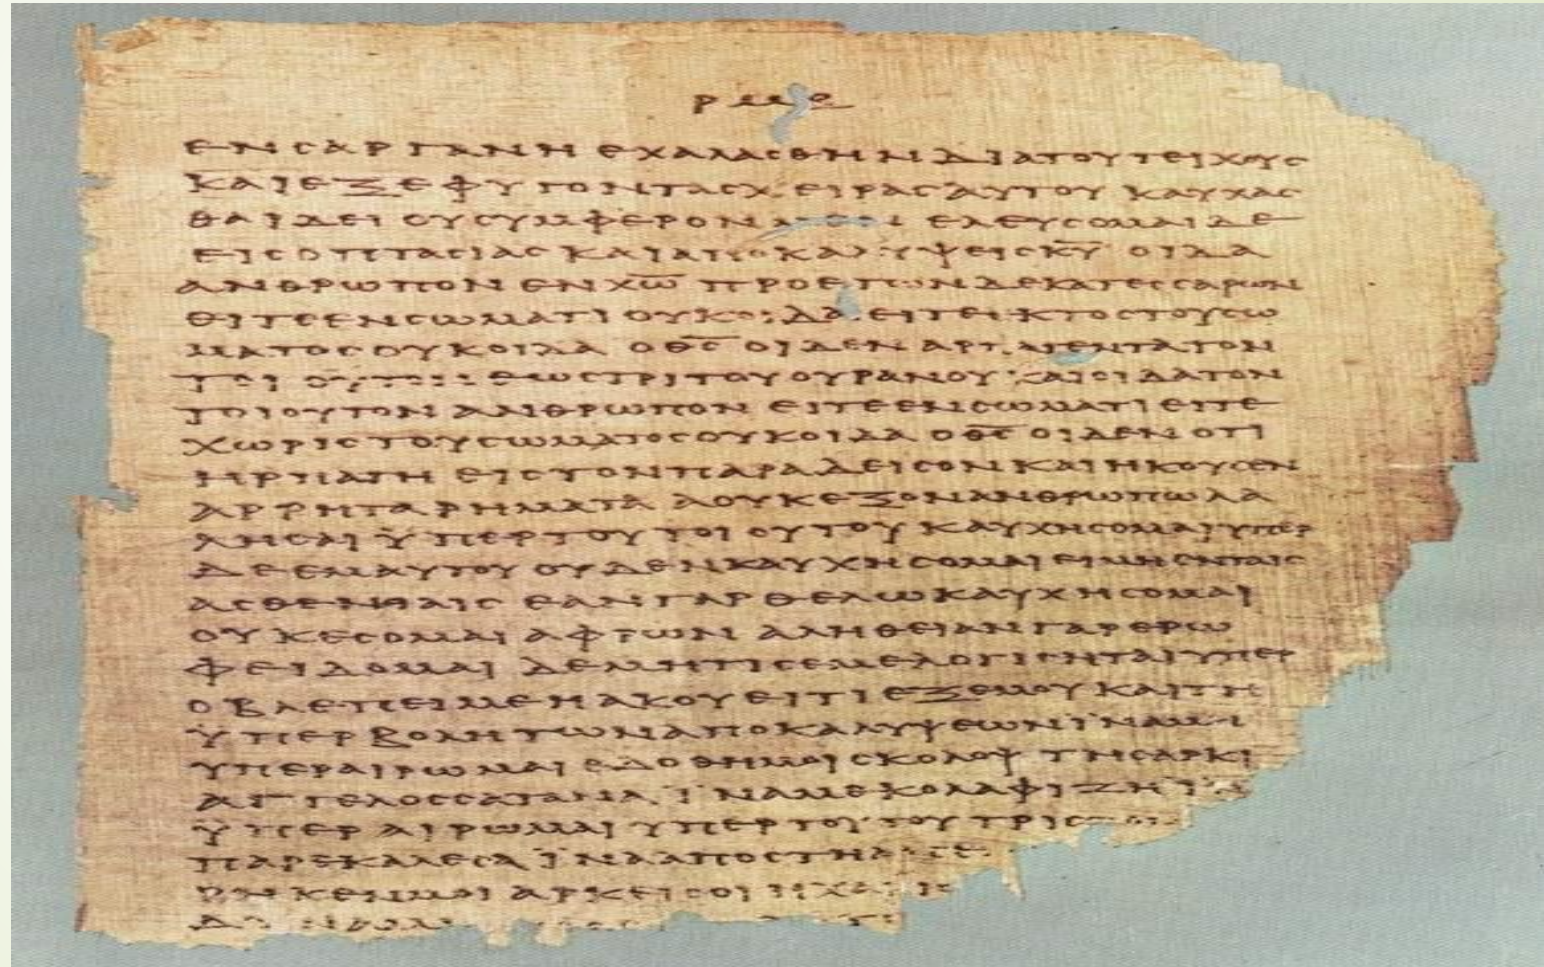 ρμε
ΕΝ ΣΑΡΓΑΝΗ ΕΧΑΛΑΣΘΗΝ ΔΙΑ ΤΟΥ ΤΕΙΧΟΥΣ
ΚΑΙ ΕΞΕΦΥΓΟΝ ΤΑΣ ΧΕΙΡΑΣ ΑΥΤΟΥ ΚΑΥΧΑΣ
ΘΑΙ ΔΕΙ ΟΥ ΣΥΜΦΕΡΟΝ ΕΛΕΥΣΟΜΑΙ ΔΕ
ΕΙΣ ΟΠΤΑΣΙΑΣ ΚΑΙ ΑΠΟΚΑΛΥΨΕΙΣ Κ̅Υ̅ ΟΙΔΑ
ΑΝΘΡΩΠΟΝ ΕΝ Χ̅Ω̅ ΠΡΟ ΕΤΩΝ ΔΕΚΑΤΕΣΣΑΡΩΝ
ΕΙΤΕ ΕΝ ΣΩΜΑΤΙ ΟΥΚ ΟΙΔΑ ΕΙΤΕ ΕΚΤΟΣ ΤΟΥ ΣΩ
ΜΑΤΟΣ ΟΥΚ ΟΙΔΑ Ο Θ̅Σ̅ ΟΙΔΕΝ ΑΡΠΑΓΕΝΤΑ ΤΟΝ
ΤΟΙΟΥΤΟΝ ΕΩΣ ΤΡΙΤΟΥ ΟΥΡΑΝΟΥ ΚΑΙ ΟΙΔΑ ΤΟΝ
ΤΟΙΟΥΤΟΝ ΑΝΘΡΩΠΟΝ ΕΙΤΕ ΕΝ ΣΩΜΑΤΙ ΕΙΤΕ
ΧΩΡΙΣ ΤΟΥ ΣΩΜΑΤΟΣ ΟΥΚ ΟΙΔΑ Ο Θ̅Σ̅ ΟΙΔΕΝ ΟΤΙ
ΗΡΠΑΓΗ ΕΙΣ ΤΟΝ ΠΑΡΑΔΕΙΣΟΝ ΚΑΙ ΗΚΟΥΣΕΝ
ΑΡΡΗΤΑ ΡΗΜΑΤΑ Α ΟΥΚ ΕΞΟΝ ΑΝΘΡΩΠΩ ΛΑ
ΛΗΣΑΙ ΫΠΕΡ ΤΟΥ ΤΟΙΟΥΤΟΥ ΚΑΥΧΗΣΟΜΑΙ ΥΠΕΡ
ΔΕ ΕΜΑΥΤΟΥ ΟΥΔΕΝ ΚΑΥΧΗΣΟΜΑΙ ΕΙ ΜΗ ΕΝ ΤΑΙΣ
ΑΣΘΕΝΕΙΑΙΣ ΕΑΝ ΓΑΡ ΘΕΛΩ ΚΑΥΧΗΣΟΜΑΙ
ΟΥΚ ΕΣΟΜΑΙ ΑΦΡΩΝ ΑΛΗΘΕΙΑΝ ΓΑΡ ΕΡΩ
ΦΕΙΔΟΜΑΙ ΔΕ ΜΗ ΤΙΣ ΕΜΕ ΛΟΓΙΣΗΤΑΙ ΥΠΕΡ
Ο ΒΛΕΠΕΙ ΜΕ Η ΑΚΟΥΕΙ ΤΙ ΕΞ ΕΜΟΥ ΚΑΙ ΤΗ
ΫΠΕΡΒΟΛΗ ΤΩΝ ΑΠΟΚΑΛΥΨΕΩΝ ΪΝΑ ΜΗ
ΥΠΕΡΑΙΡΩΜΑΙ ΕΔΟΘΗ ΜΟΙ ΣΚΟΛΟΨ ΤΗ ΣΑΡΚΙ
ΑΓΓΕΛΟΣ ΣΑΤΑΝΑ ΪΝΑ ΜΕ ΚΟΛΑΦΙΖΗ
ΫΠΕΡΑΙΡΩΜΑΙ ΥΠΕΡ ΤΟΥΤΟΥ ΤΡΙΣ
ΠΑΡΕΚΑΛΕΣΑ ΪΝΑ ΑΠΟΣΤΗ
ΚΕΝ ΜΟΙ ΑΡΚΕΙ ΣΟΙ Η ΧΑ